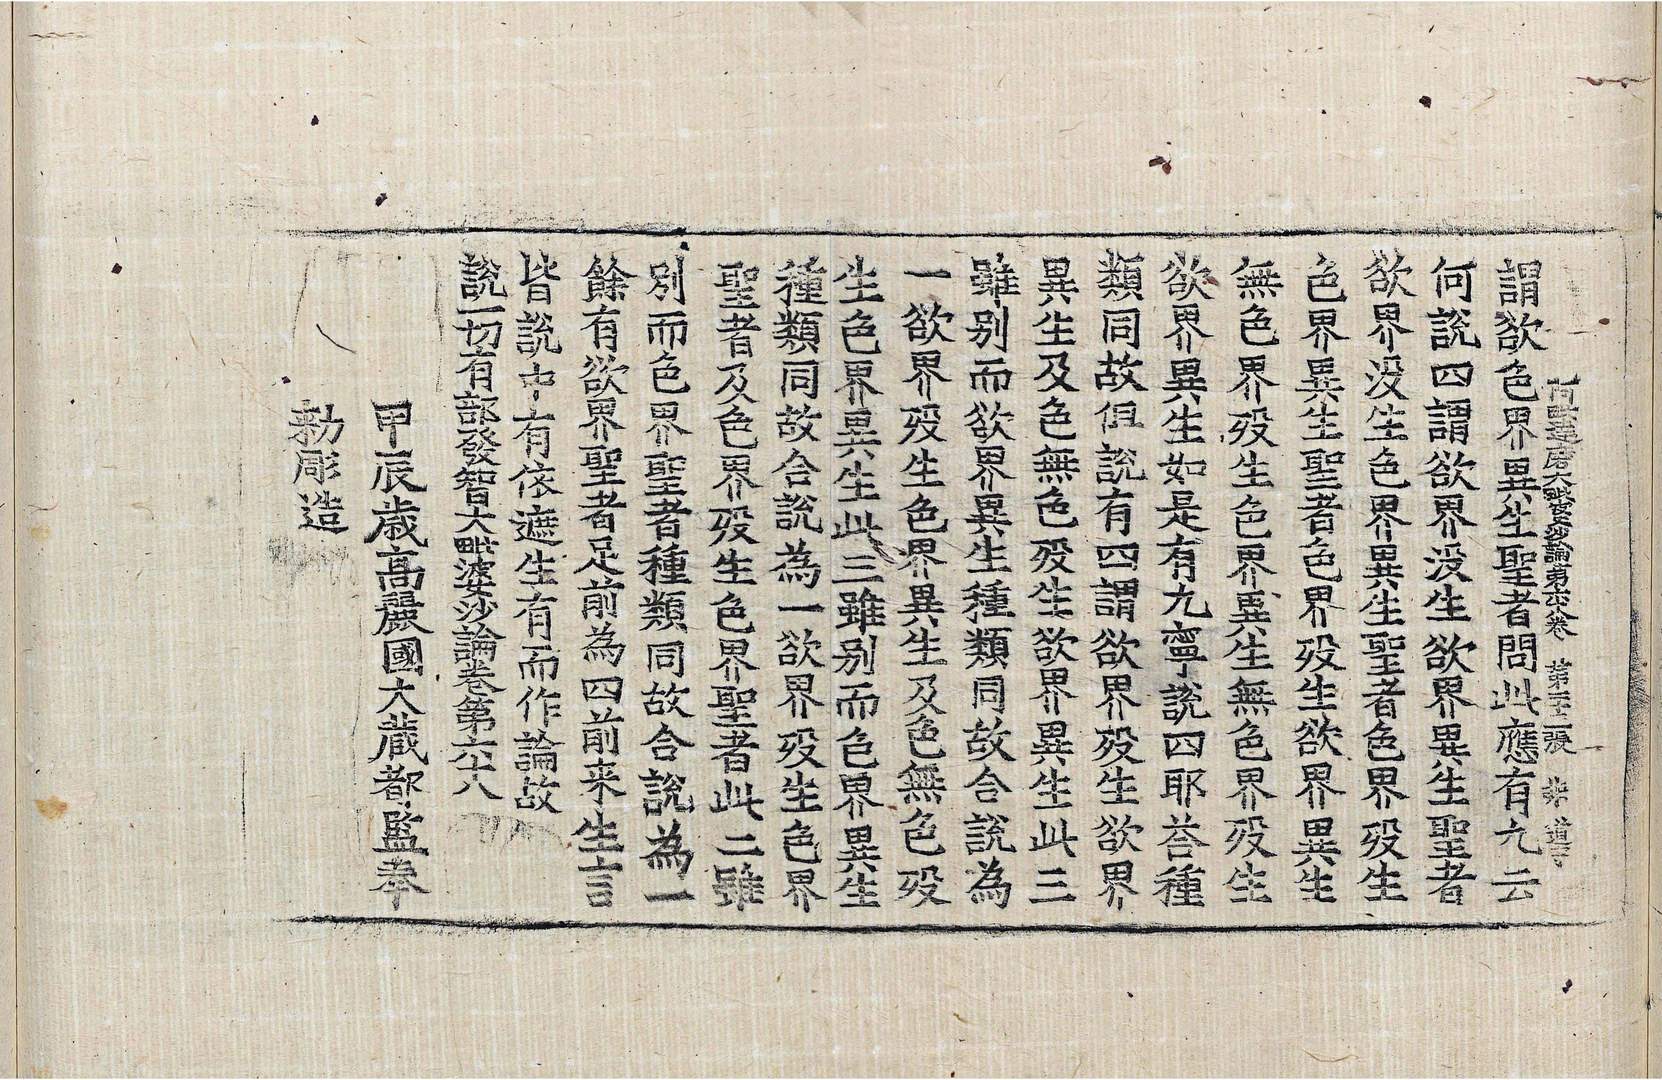 阿毗達磨大毗婆沙論第六十八卷 第二十二張 非 道守
謂欲色界異生聖者問此應有九云
何說四謂欲界没生欲界異生聖者
欲界没生色界異生聖者色界歿生
色界異生聖者色界歿生欲界異生
無色界歿生色界異生無色界歿生
欲界異生如是有九寧說四耶荅種
類同故但說有四謂欲界歿生欲界
異生及色無色歿生欲界異生此三
雖别而欲界異生種類同故合說為
一欲界歿生色界異生及色無色歿
生色界異生此三雖别而色界異生
種類同故合說為一欲界歿生色界
聖者及色界歿生色界聖者此二雖
别而色界聖者種類同故合說為一
餘有欲界聖者足前為四前来生言
皆說中有依遮生有而作論故
說一切有部發智大毗婆沙論卷第六十八
甲辰歳高麗國大藏都監奉
勅彫造